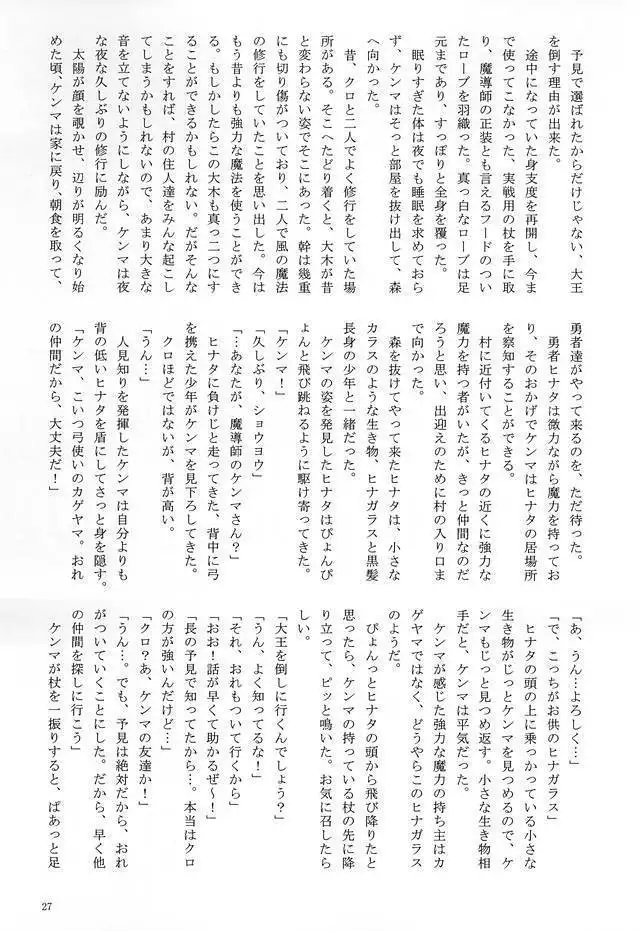 予見で選ばれたからだけじゃない、大王
を倒す理由が出来た。
途中になっていた身支度を再開し、今ま
で使ってこなかった、実戦用の杖を手に取
り、魔導師の正装とも言えるフードのつい
たローブを羽織った。真っ白なローブは足
元まであり、すっぽりと全身を覆った。
眠りすぎた体は夜でも睡眠を求めておら
ず、ケンマはそっと部屋を抜け出して、森
へ向かった。
昔、クロと二人でよく修行をしていた場
所がある。そこへたどり着くと、大木が昔
と変わらない姿でそこにあった。幹は幾重
にも切り傷がついており、二人で風の魔法
の修行をしていたことを思い出した。今は
もう昔よりも強力な魔法を使うことができ
る。もしかしたらこの大木も真っ二つにす
ることができるかもしれない。だがそんな
ことをすれば、村の住人達をみんな起こし
てしまうかもしれないので、あまり大きな
音を立てないようにしながら、ケンマは夜
な夜な久しぶりの修行に励んだ。
太陽が顔を覗かせ、辺りが明るくなり始
めた頃、ケンマは家に戻り、朝食を取って、
勇者達がやって来るのを、ただ待った。
勇者ヒナタは微力ながら魔力を持ってお
り、そのおかげでケンマはヒナタの居場所
を察知することができる。
村に近付いてくるヒナタの近くに強力な
魔力を持つ者がいたが、きっと仲間なのだ
ろうと思い、出迎えのために村の入り口ま
で向かった。
森を抜けてやって来たヒナタは、小さな
カラスのような生き物、ヒナガラスと黒髪
長身の少年と一緒だった。
ケンマの姿を発見したヒナタはぴょんぴ
ょんと飛び跳ねるように駆け寄ってきた。
「ケンマ！」
「久しぶり、ショウヨウ」
「…あなたが、魔導師のケンマさん？」
ヒナタに負けじと走ってきた、背中に弓
を携えた少年がケンマを見下ろしてきた。
クロほどではないが、背が高い。
「うん…」
人見知りを発揮したケンマは自分よりも
背の低いヒナタを盾にしてさっと身を隠す。
「ケンマ、こいつ弓使いのカゲヤマ。おれ
の仲間だから、大丈夫だ！」
「あ、うん…よろしく…」
「で、こっちがお供のヒナガラス」
ヒナタの頭の上に乗っかっている小さな
生き物がじっとケンマを見つめるので、ケ
ンマもじっと見つめ返す。小さな生き物相
手だと、ケンマは平気だった。
ケンマが感じた強力な魔力の持ち主はカ
ゲヤマではなく、どうやらこのヒナガラス
のようだ。
ぴょんっとヒナタの頭から飛び降りたと
思ったら、ケンマの持っている杖の先に降
り立って、ピッと鳴いた。お気に召したら
しい。
「大王を倒しに行くんでしょう？」
「うん、よく知ってるな！」
「それ、おれもついて行くから」
「おお！話が早くて助かるぜ〜！」
「長の予見で知ってたから…。本当はクロ
の方が強いんだけど…」
「クロ？あ、ケンマの友達か！」
「うん…。でも、予見は絶対だから、おれ
がついていくことにした。だから、早く他
の仲間を探しに行こう」
ケンマが杖を一振りすると、ぱあっと足
27